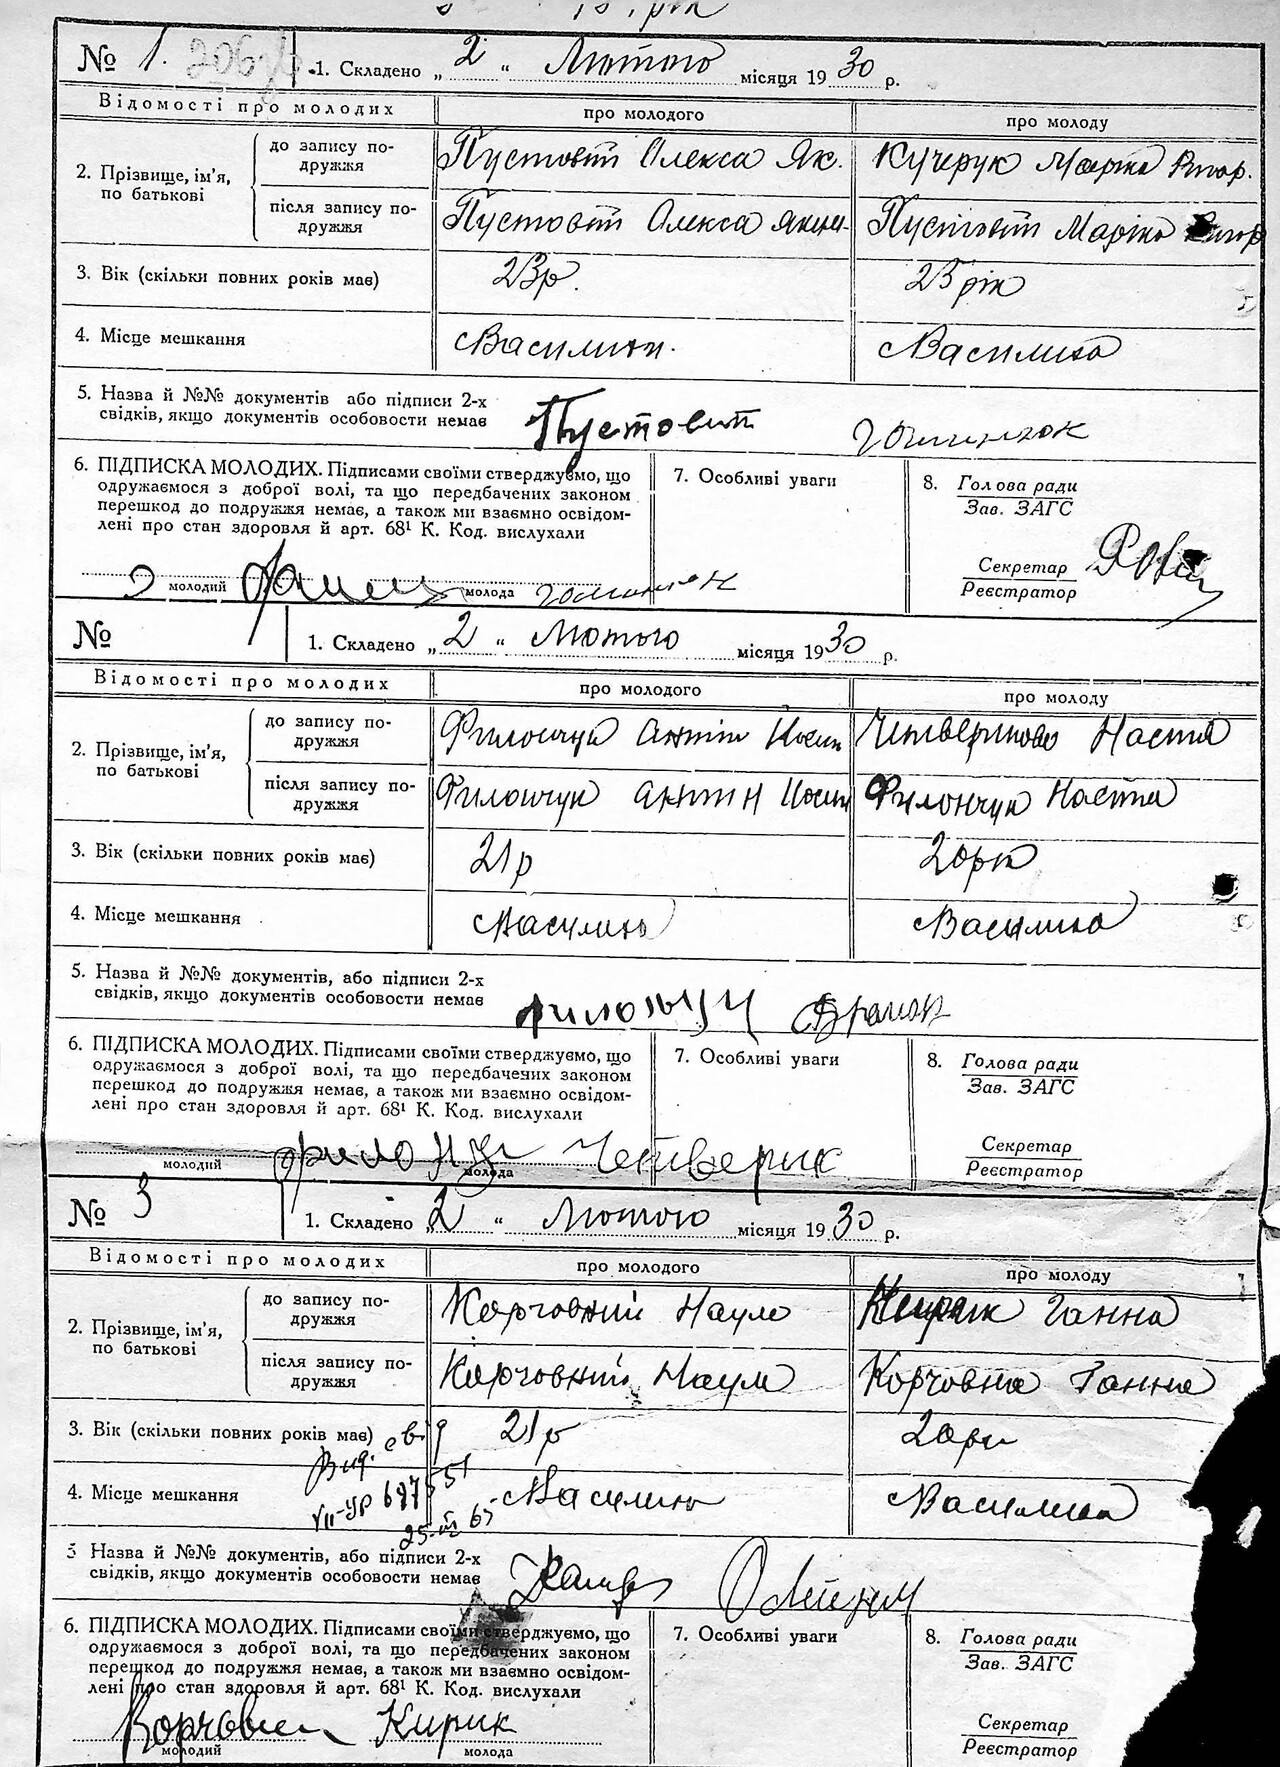 № 1. 1. Складено „2“ Лютого місяця 1930 р.
Відомості про молодих про молодого про молоду
2. Прізвище, ім’я, по батькові
до запису по-
дружжя
Пустовіт Олекса Як. Кучерук Марія Григор.
після запису по-
дружжя
Пустовіт Олекса Пустовіт Марія
3. Вік (скільки повних років має) 23 р. 25 рік
4. Місце мешкання Василин. Василина
5. Назва й №№ документів або підписи 2-х
свідків, якщо документів особовости немає
Пустовит
6. ПІДПИСКА МОЛОДИХ. Підписами своїми стверджуємо, що
одружаємося з доброї волі, та що передбачених законом
перешкод до подружжя немає, а також ми взаємно освідом-
лені про стан здоров’я й арт. 68¹ К. Код. вислухали
молодий молода
7. Особливі уваги
8. Голова ради
Зав. ЗАГС
Секретар
Реєстратор
№ 1. Складено „2“ Лютого місяця 1930 р.
Відомості про молодих про молодого про молоду
2. Прізвище, ім’я, по батькові
до запису по-
дружжя
Филончук Антін Йосип Настя
після запису по-
дружжя
Филончук Антін Йосип Филончук Настя
3. Вік (скільки повних років має) 21 р 20 рік
4. Місце мешкання Василина Василина
5. Назва й №№ документів, або підписи 2-х
свідків, якщо документів особовости немає
6. ПІДПИСКА МОЛОДИХ. Підписами своїми стверджуємо, що
одружаємося з доброї волі, та що передбачених законом
перешкод до подружжя немає, а також ми взаємно освідом-
лені про стан здоров’я й арт. 68¹ К. Код. вислухали
молодий молода Четверик
7. Особливі уваги
8. Голова ради
Зав. ЗАГС
Секретар
Реєстратор
№ 3 1. Складено „2“ Лютого місяця 1930 р.
Відомості про молодих про молодого про молоду
2. Прізвище, ім’я, по батькові
до запису по-
дружжя
Корчовний Наум Кирик Ганна
після запису по-
дружжя
Корчовний Наум Корчовна Ганна
3. Вік (скільки повних років має) 21 р 20 рік
4. Місце мешкання Василина Василина
5 Назва й №№ документів, або підписи 2-х
свідків, якщо документів особовости немає
6. ПІДПИСКА МОЛОДИХ. Підписами своїми стверджуємо, що
одружаємося з доброї волі, та що передбачених законом
перешкод до подружжя немає, а також ми взаємно освідом-
лені про стан здоров’я й арт. 68¹ К. Код. вислухали
Кирик
молодий молода
7. Особливі уваги
8. Голова ради
Зав. ЗАГС
Секретар
Реєстратор